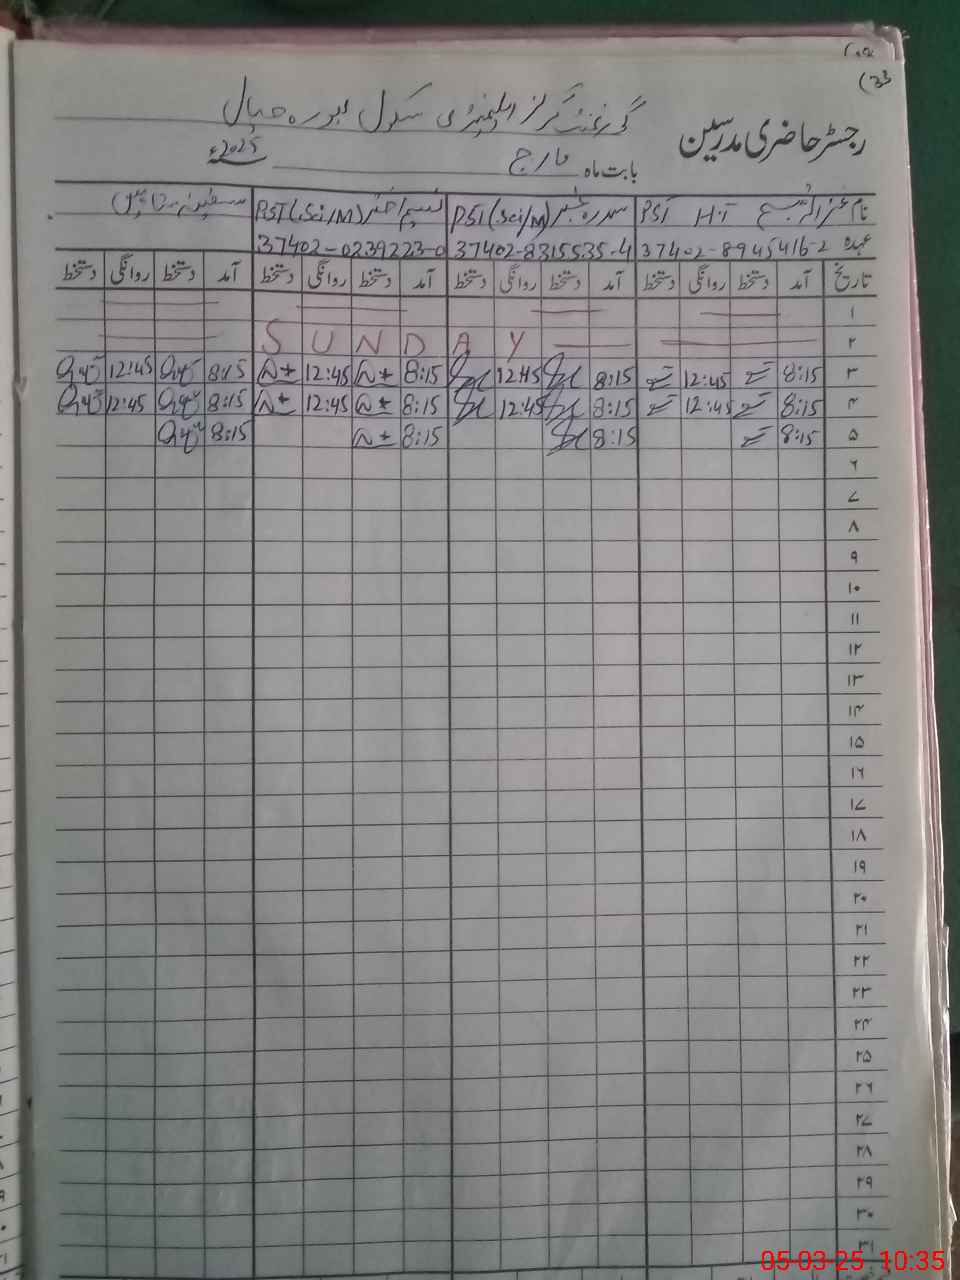 (33
گورنمنٹ گرلز ایلیمنٹری سکول
رجسٹر حاضری مدرسین
بابت ماہ مارچ 2025ء
نام PST H.T PST (Sci/M) نسیم اختر PST (Sci/M)
عہدہ 37402-8945416-2 37402-8315535-4 37402-0239223-0
تاریخ آمد دستخط روانگی دستخط آمد دستخط روانگی دستخط آمد دستخط روانگی دستخط آمد دستخط روانگی دستخط
۱
۲ SUNDAY
۳ 8:15 12:45 8:15 12:45 8:15 12:45 8:15 12:45
۴ 8:15 12:45 8:15 12:45 8:15 12:45 8:15 12:45
۵ 8:15 8:15 8:15 8:15
۶
۷
۸
۹
۱۰
۱۱
۱۲
۱۳
۱۴
۱۵
۱۶
۱۷
۱۸
۱۹
۲۰
۲۱
۲۲
۲۳
۲۴
۲۵
۲۶
۲۷
۲۸
۲۹
۳۰
۳۱
05-03-25 10:35